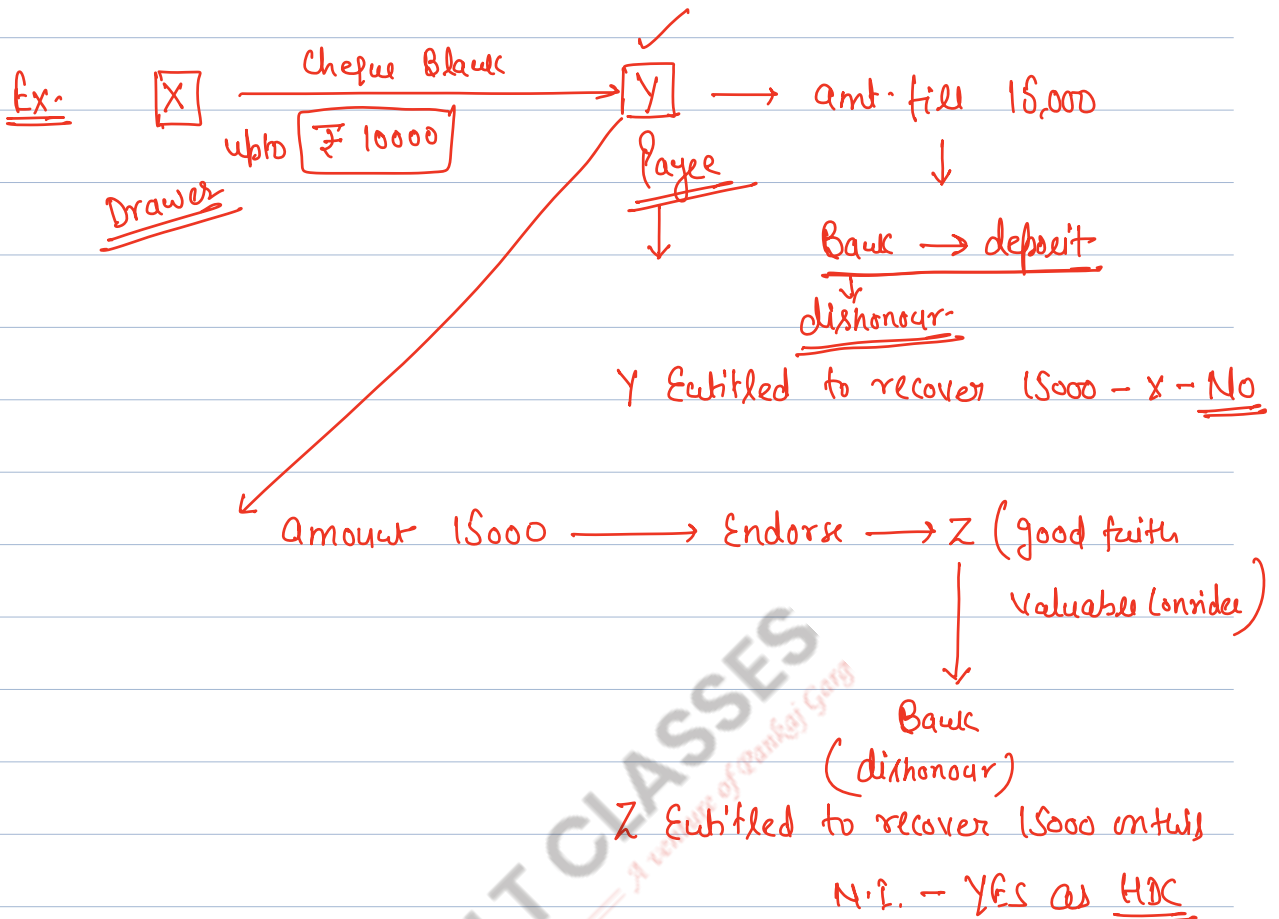 Ex.
X
Cheque Blank
upto ₹ 10000
Drawer
Y → amt. fill 15,000
Payee
Bank → deposit
dishonour
Y Entitled to recover 15000 - X - No
amount 15000 → Endorse → Z (good faith
Valuable Conside)
Bank
(dishonour)
Z Entitled to recover 15000 on this
N.I. - YES as HDC
T CLASSES
A venture of Pankaj Garg